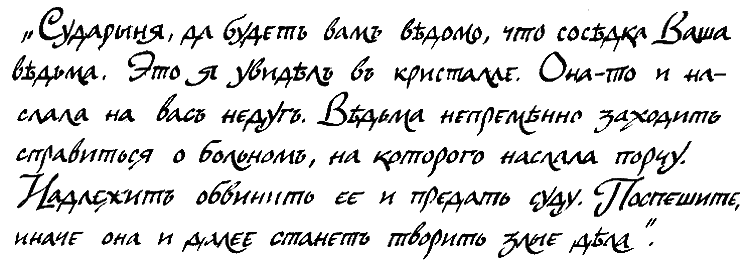 „Сударыня, да будетъ вамъ вѣдомо, что сосѣдка Ваша
вѣдьма. Это я увидѣлъ въ кристалле. Она-то и на-
слала на васъ недугъ. Вѣдьма непремѣнно заходитъ
справиться о больномъ, на которого наслала порчу.
Надлежитъ обвинить ее и предать суду. Поспешите,
иначе она и далее станетъ творить злые дѣла".